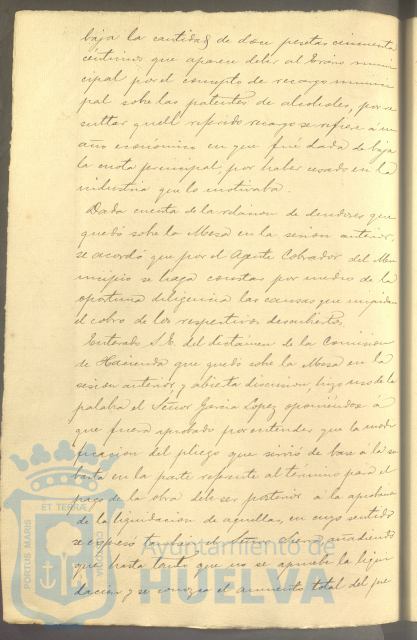 baja la cantidad de doce pesetas cincuenta
centimos que aparece deber al Erario muni
cipal por el concepto de recargo munici
pal sobre las patentes de alcoholes, por re
sultar que el referido recargo se refiere á un
año económico en que fué dada de baja
la cuota principal, por haber cesado en la
industria que lo motivaba.
Dada cuenta de la relacion de deudores que
quedó sobre la Mesa en la sesion anterior,
se acordó que por el Agente Cobrador del Mu
nicipio se haga constar por medio de la
oportuna diligencia las causas que impiden
el cobro de los respectivos descubiertos.
Enterado S.E. del dictamen de la Comision
de Hacienda que quedó sobre la Mesa en la
sesion anterior, y abierta discusion, hizo uso de la
palabra el Señor Garcia Lopez oponiendose á
que fuera aprobado por entender que la modi
ficacion del pliego que sirvió de base á la su
basta en la parte referente al término para el
pago de la obra debe ser posterior á la aproba
de la liquidacion de aquellas, en cuyo sentido
se expresó tambien el Señor añadiendo
que hasta tanto que no se apruebe la liqui
dacion y se conozca el aumento total del pre
PORTUS MARIS ET TERRAE
Ayuntamiento de
HUELVA